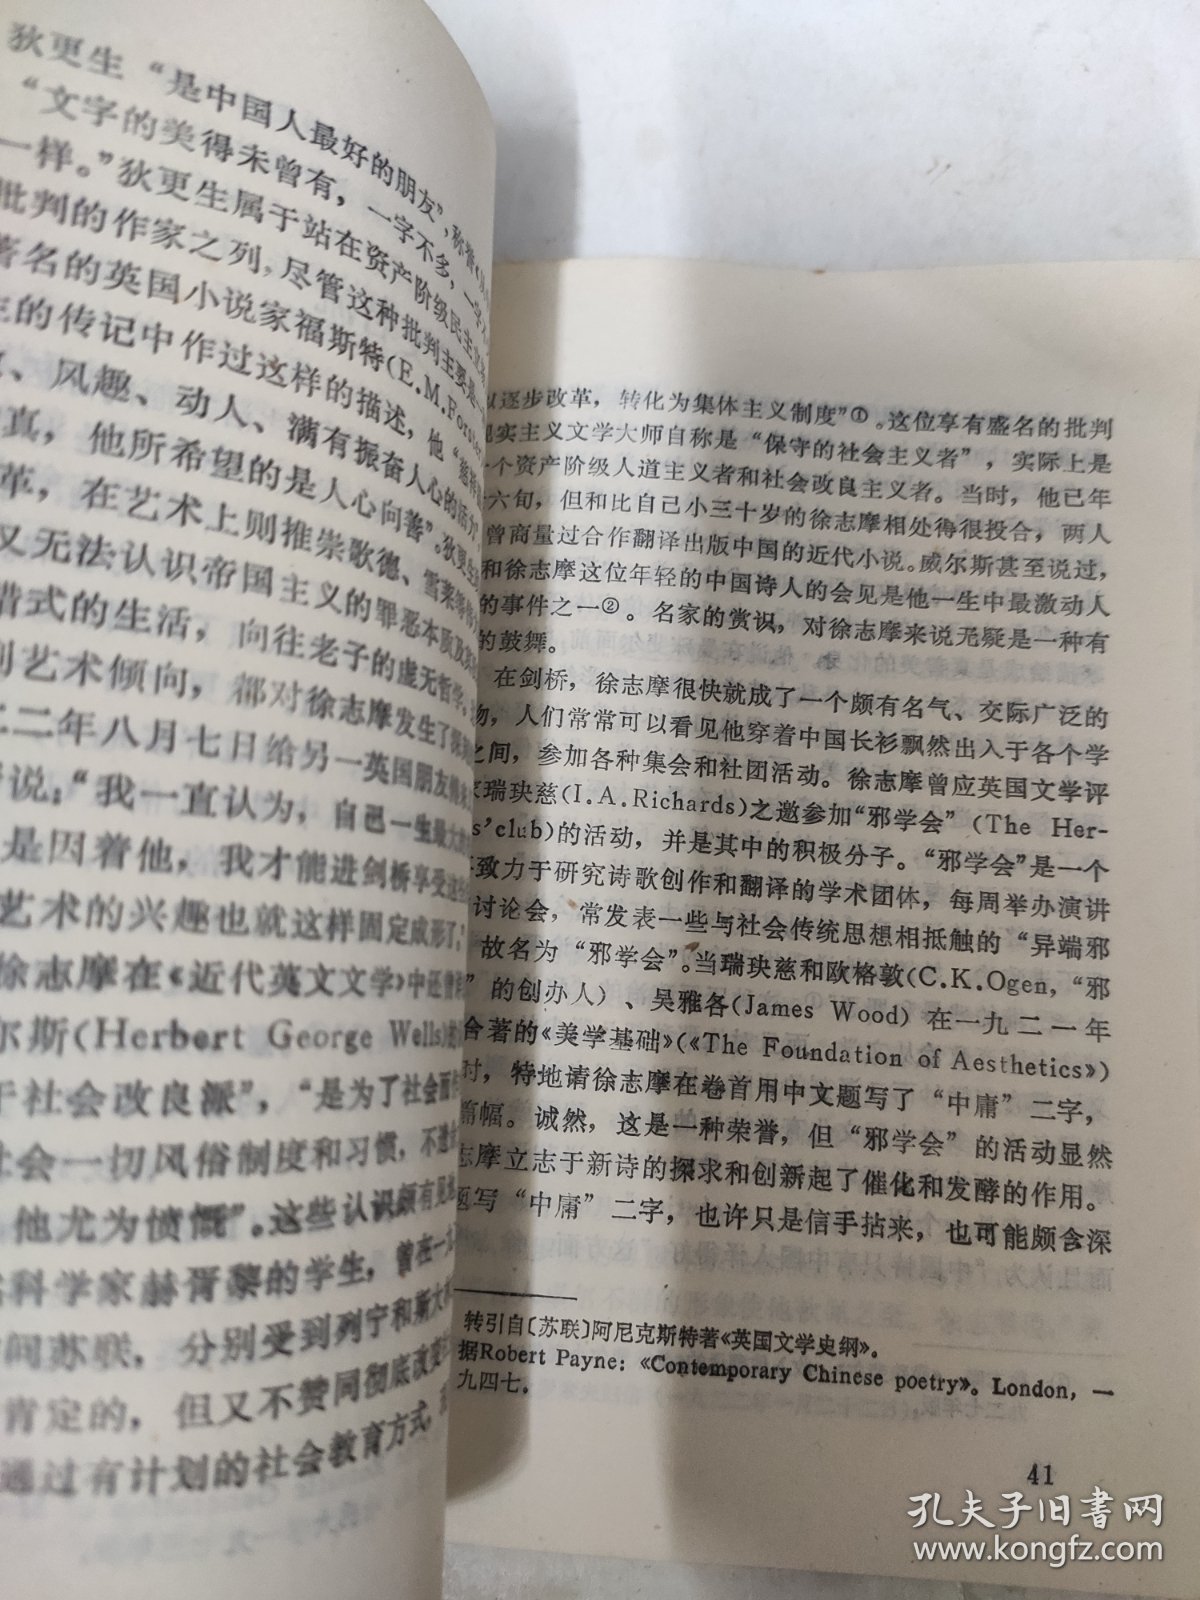 狄更生“是中国人最好的朋友”，称誉
“文字的美得未曾有，一字不多，一字
一样。”狄更生属于站在资产阶级民主
批判的作家之列，尽管这种批判主要是
著名的英国小说家福斯特(E.M.Forster
的传记中作过这样的描述，他“
、风趣、动人、满有振奋人心的活力”
真，他所希望的是人心向善”。狄更生
革，在艺术上则推崇歌德、雪莱
又无法认识帝国主义的罪恶本质及
式的生活，向往老子的虚无哲学，
到艺术倾向，都对徐志摩发生了
二二年八月七日给另一英国朋友
说：“我一直认为，自己一生最大
是因着他，我才能进剑桥享受
艺术的兴趣也就这样固定成形了。
徐志摩在《近代英文文学》中还曾
尔斯(Herbert George Wells)
于社会改良派”，“是为了社会而
社会一切风俗制度和习惯，不
他尤为愤慨”。这些认识颇有见
科学家赫胥黎的学生，曾在一九
访问苏联，分别受到列宁和斯大林
肯定的，但又不赞同彻底改变
通过有计划的社会教育方式，
以逐步改革，转化为集体主义制度”①。这位享有盛名的批判
现实主义文学大师自称是“保守的社会主义者”，实际上是
一个资产阶级人道主义者和社会改良主义者。当时，他已年
六旬，但和比自己小三十岁的徐志摩相处得很投合，两人
曾商量过合作翻译出版中国的近代小说。威尔斯甚至说过，
和徐志摩这位年轻的中国诗人的会见是他一生中最激动人
的事件之一②。名家的赏识，对徐志摩来说无疑是一种有
的鼓舞。
在剑桥，徐志摩很快就成了一个颇有名气、交际广泛的
物，人们常常可以看见他穿着中国长衫飘然出入于各个学
之间，参加各种集会和社团活动。徐志摩曾应英国文学评
家瑞玦慈(I.A.Richards)之邀参加“邪学会”(The Her-
s'club)的活动，并是其中的积极分子。“邪学会”是一个
致力于研究诗歌创作和翻译的学术团体，每周举办演讲
讨论会，常发表一些与社会传统思想相抵触的“异端邪
故名为“邪学会”。当瑞玦慈和欧格敦(C.K.Ogen，“邪
”的创办人)、吴雅各(James Wood)在一九二一年
合著的《美学基础》(《The Foundation of Aesthetics》)
时，特地请徐志摩在卷首用中文题写了“中庸”二字，
篇幅。诚然，这是一种荣誉，但“邪学会”的活动显然
志摩立志于新诗的探求和创新起了催化和发酵的作用。
题写“中庸”二字，也许只是信手拈来，也可能颇含深
转引自〔苏联〕阿尼克斯特著《英国文学史纲》。
据Robert Payne：《Contemporary Chinese poetry》。London，一
九四七。
41
孔夫子旧书网
www.kongfz.com